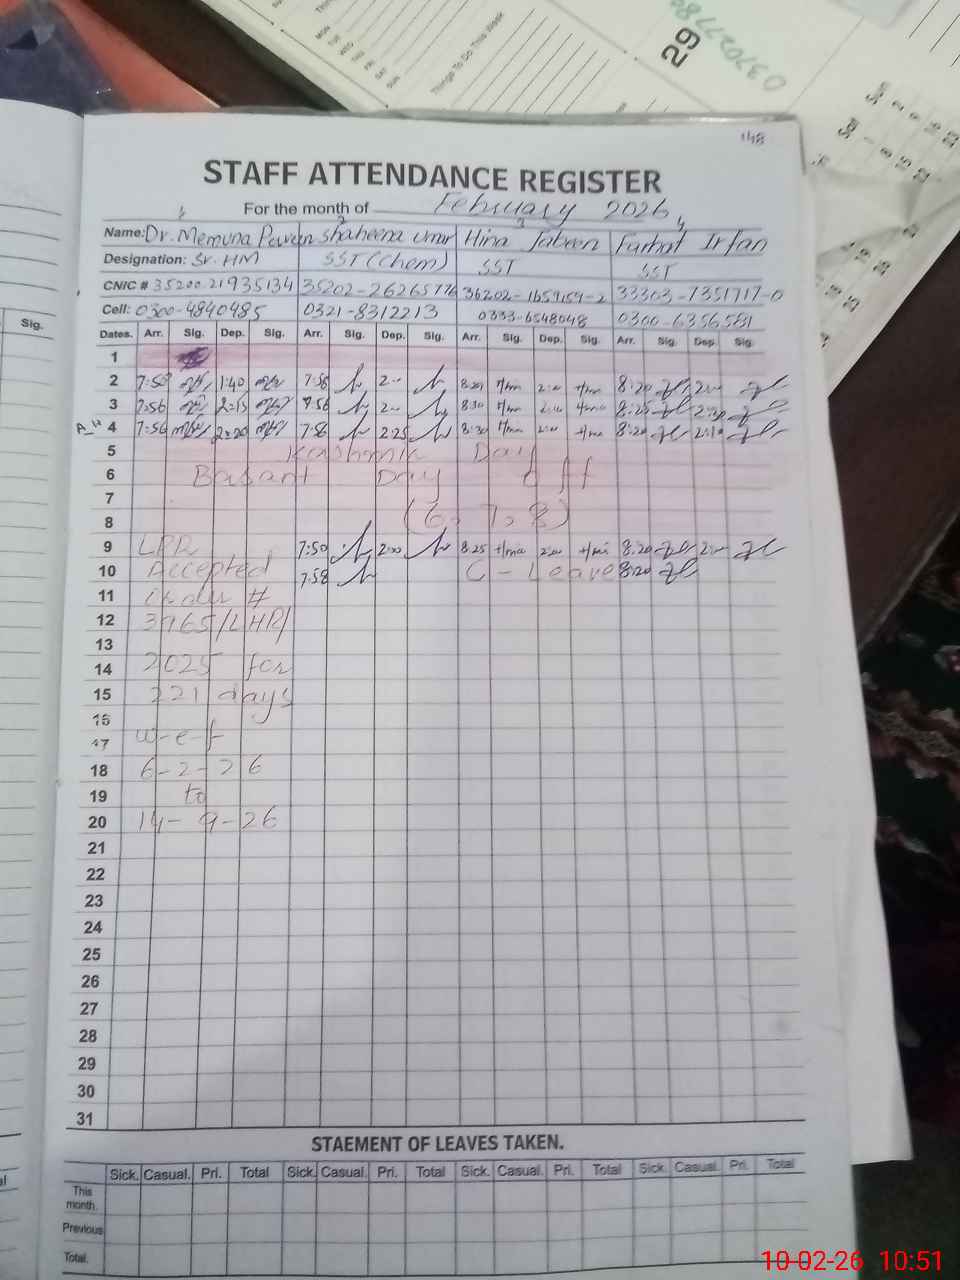 Things To Do This Week
MON
TUE
WED
THU
FRI
SAT
SUN
29
Sun
Sat
148
STAFF ATTENDANCE REGISTER
For the month of February 2026
1 2 3 4
Name: Dr. Memuna Parveen Shaheena Umar Hina Jabeen Farhat Irfan
Designation: Sr. HM SST (Chem) SST SST
CNIC # 35200-21935134 35202-2626577 36202-1659159-2 33303-7351717-0
Cell: 0300-4840485 0321-8312213 0333-6548048 0300-6356581
Sig.
Dates. Arr. Sig. Dep. Sig. Arr. Sig. Dep. Sig. Arr. Sig. Dep. Sig. Arr. Sig. Dep. Sig.
1
2 7:50 1:40 7:58 2:00 8:20 2:00 8:20 2:00
3 7:56 2:15 7:56 2:00 8:30 2:10 8:25 2:30
4 7:56 2:20 7:56 2:25 8:30 2:00 8:20 2:10
5 Kashmir Day
6 Basant Day off
7
8 (6, 7, 8)
9 LPR 7:50 2:00 8:25 2:00 8:20 2:00
10 Accepted 7:58 C-Leave 8:20
11 under #
12 3965/LHR/
13
14 2025 for
15 221 days
16
17 w-e-f
18 6-2-26
19 to
20 14-9-26
21
22
23
24
25
26
27
28
29
30
31
STAEMENT OF LEAVES TAKEN.
Sick. Casual. Pri. Total Sick. Casual. Pri. Total Sick. Casual. Pri. Total Sick. Casual. Pri. Total
This month.
Previous
Total.
10-02-26 10:51